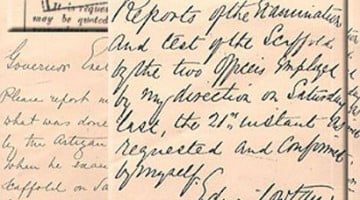 It is reque
may be quoted
Governor
Please report
what was done
by the Artizan
when he exam
Scaffold on Sa
Reports of the Examination
and test of the Scaffold
by the two Officers Employed
by my direction on Saturday
last, the 21st instant
requested and Confirmed
by myself.